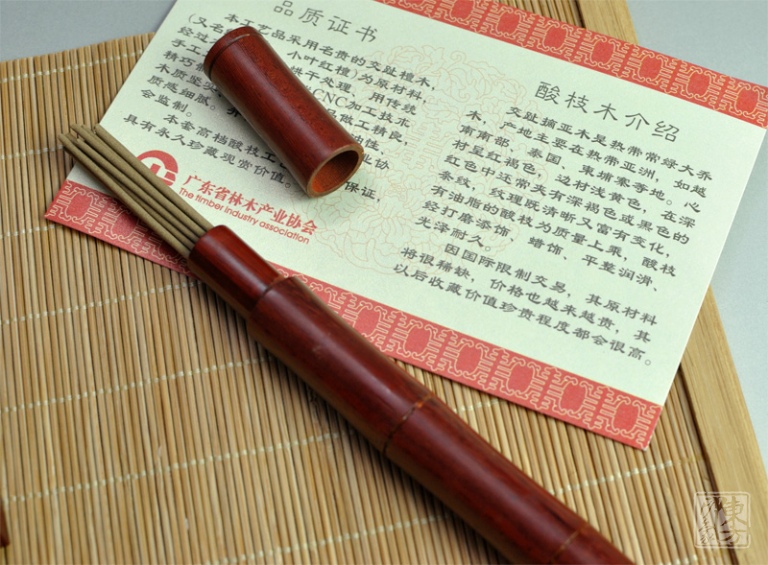 品质证书
本工艺品采用名贵的交趾檀木，
(又名 小叶红檀)为原材料，
经过 烘干处理，用传统
手工 CNC加工技术
精巧 品做工精良，
木质坚实 油性，
质感细腻。 业协
会监制。
本套高档酸枝工 保证，
具有永久珍藏现赏价值。
广东省林木产业协会
The timber industry association
酸枝木介绍
交趾摘亚木是热带常绿大乔
木，产地主要在热带亚洲，如越
南南部、泰国、柬埔寨等地。心
材呈红褐色，边材浅黄色，在深
红色中还常夹有深褐色或黑色的
条纹，纹理既清晰又富有变化，
有油脂的酸枝为质量上乘，酸枝
经打磨漆饰、蜡饰、平整润滑、
光泽耐久。
因国际限制交易，其原材料
将很稀缺，价格也越来越贵，其
以后收藏价值珍贵程度都会很高。